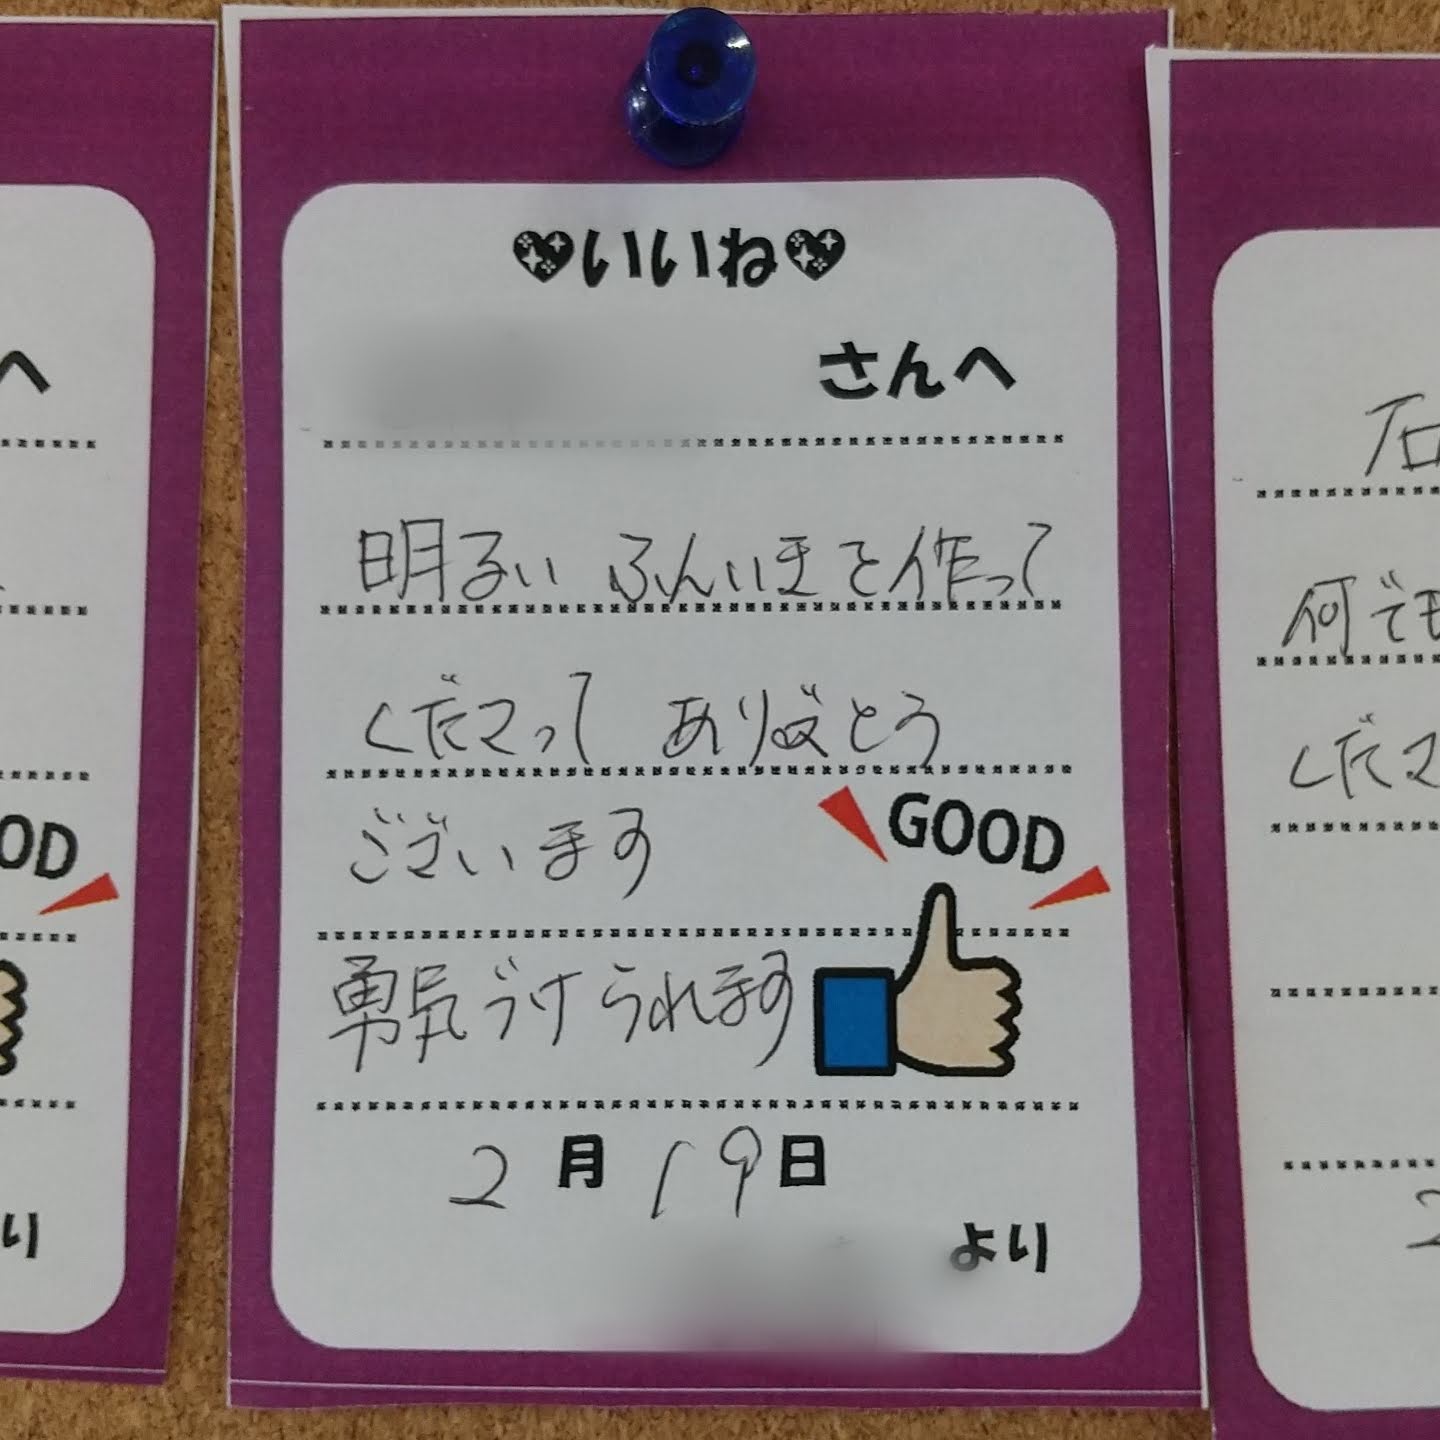 いいね
さんへ
明るい ふんいきを作って
くださって ありがとう
ございます
GOOD
勇気づけられます
2月19日
より
へ
OD
り
石
何でも
くださ
2